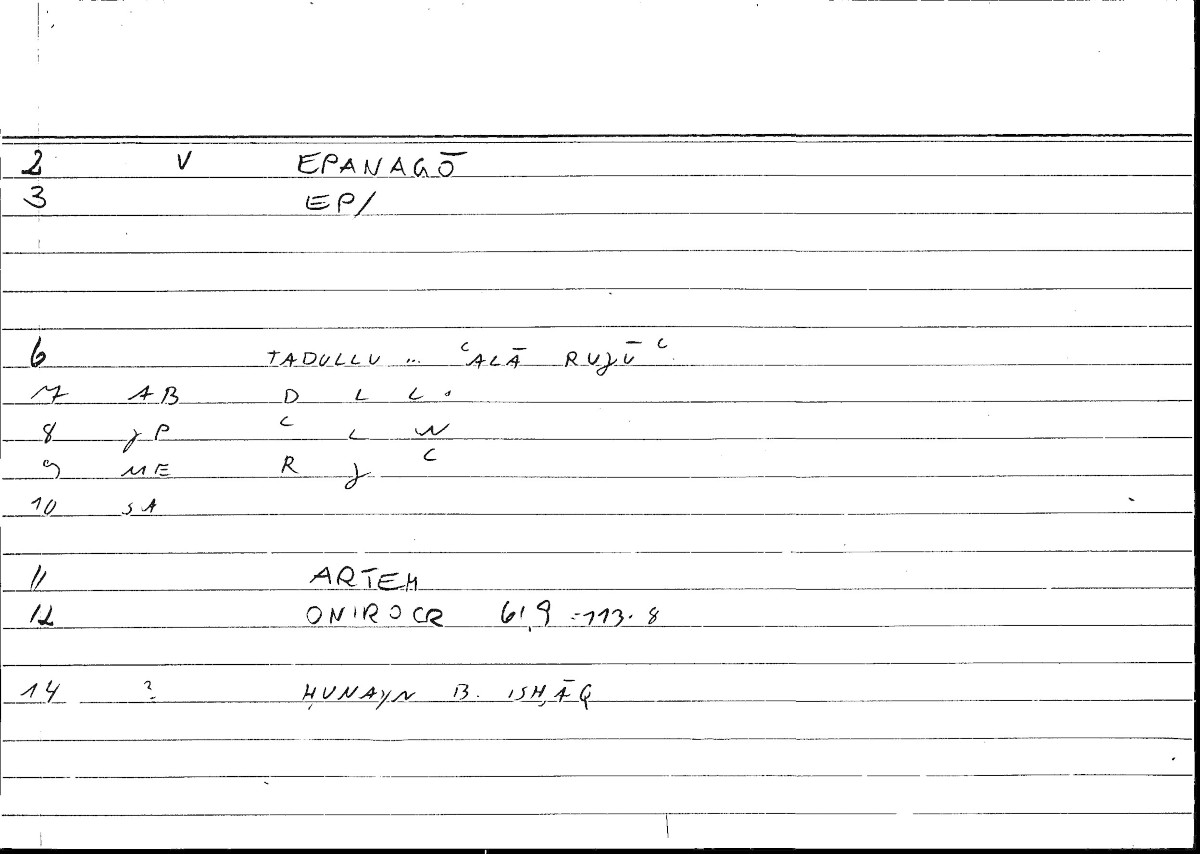 2 V EPANAGŌ
3 EP/
6 TADULLU ... ʿALĀ RUJŪʿ
7 AB D L L .
8 JP ʿ L W
9 ME R J ʿ
10 SA
11 ARTEM
12 ONIROCR 61,9 = 113.8
14 ? ḤUNAYN B. ISḤĀQ